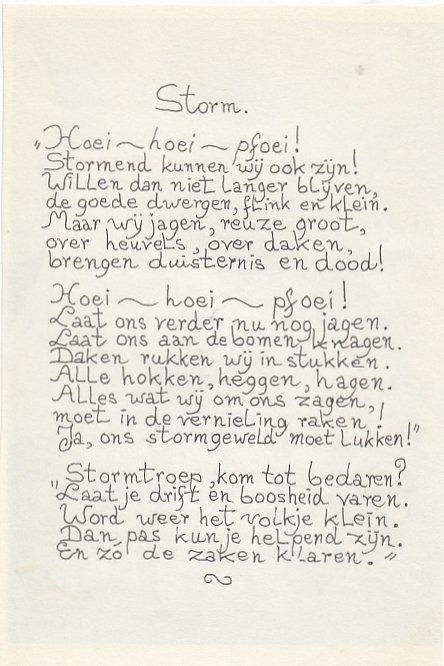 Storm.
„Hoei ~ hoei ~ pfoei!
Stormend kunnen wij ook zijn!
Willen dan niet langer blijven,
de goede dwergen, flink en klein.
Maar wij jagen, reuze groot,
over heuvels, over daken,
brengen duisternis en dood!
Hoei ~ hoei ~ pfoei!
Laat ons verder nu nog jagen.
Laat ons aan de bomen knagen.
Daken rukken wij in stukken.
Alle hokken, heggen, hagen.
Alles wat wij om ons zagen,
moet in de vernieling raken!
Ja, ons stormgeweld moet lukken!"
„Stormtroep, kom tot bedaren?
Laat je drift en boosheid varen.
Word weer het volkje klein.
Dan pas kun je helpend zijn.
En zó de zaken klaren."